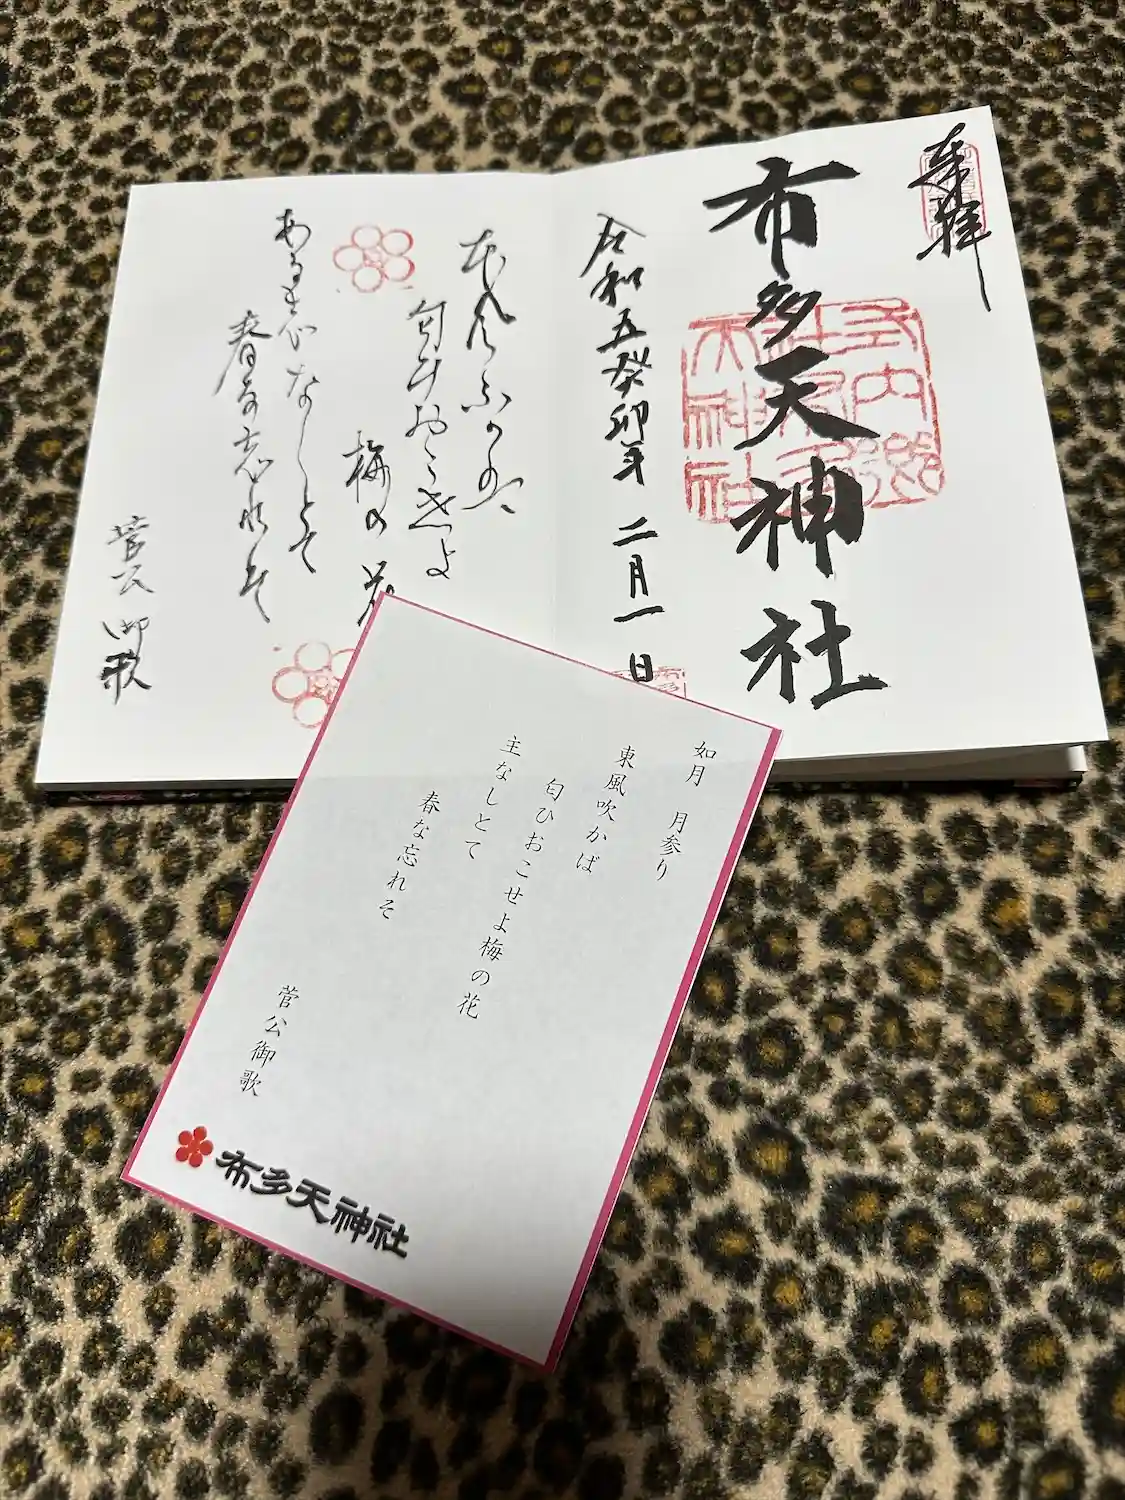 奉拝
布多天神社
令和五癸卯年 二月一日
東風ふかば
匂ひおこせよ
梅の花
あるじなしとて
春な忘れそ
菅公御歌
天神社
如月 月参り
東風吹かば
匂ひおこせよ梅の花
主なしとて
春な忘れそ
菅公御歌
布多天神社